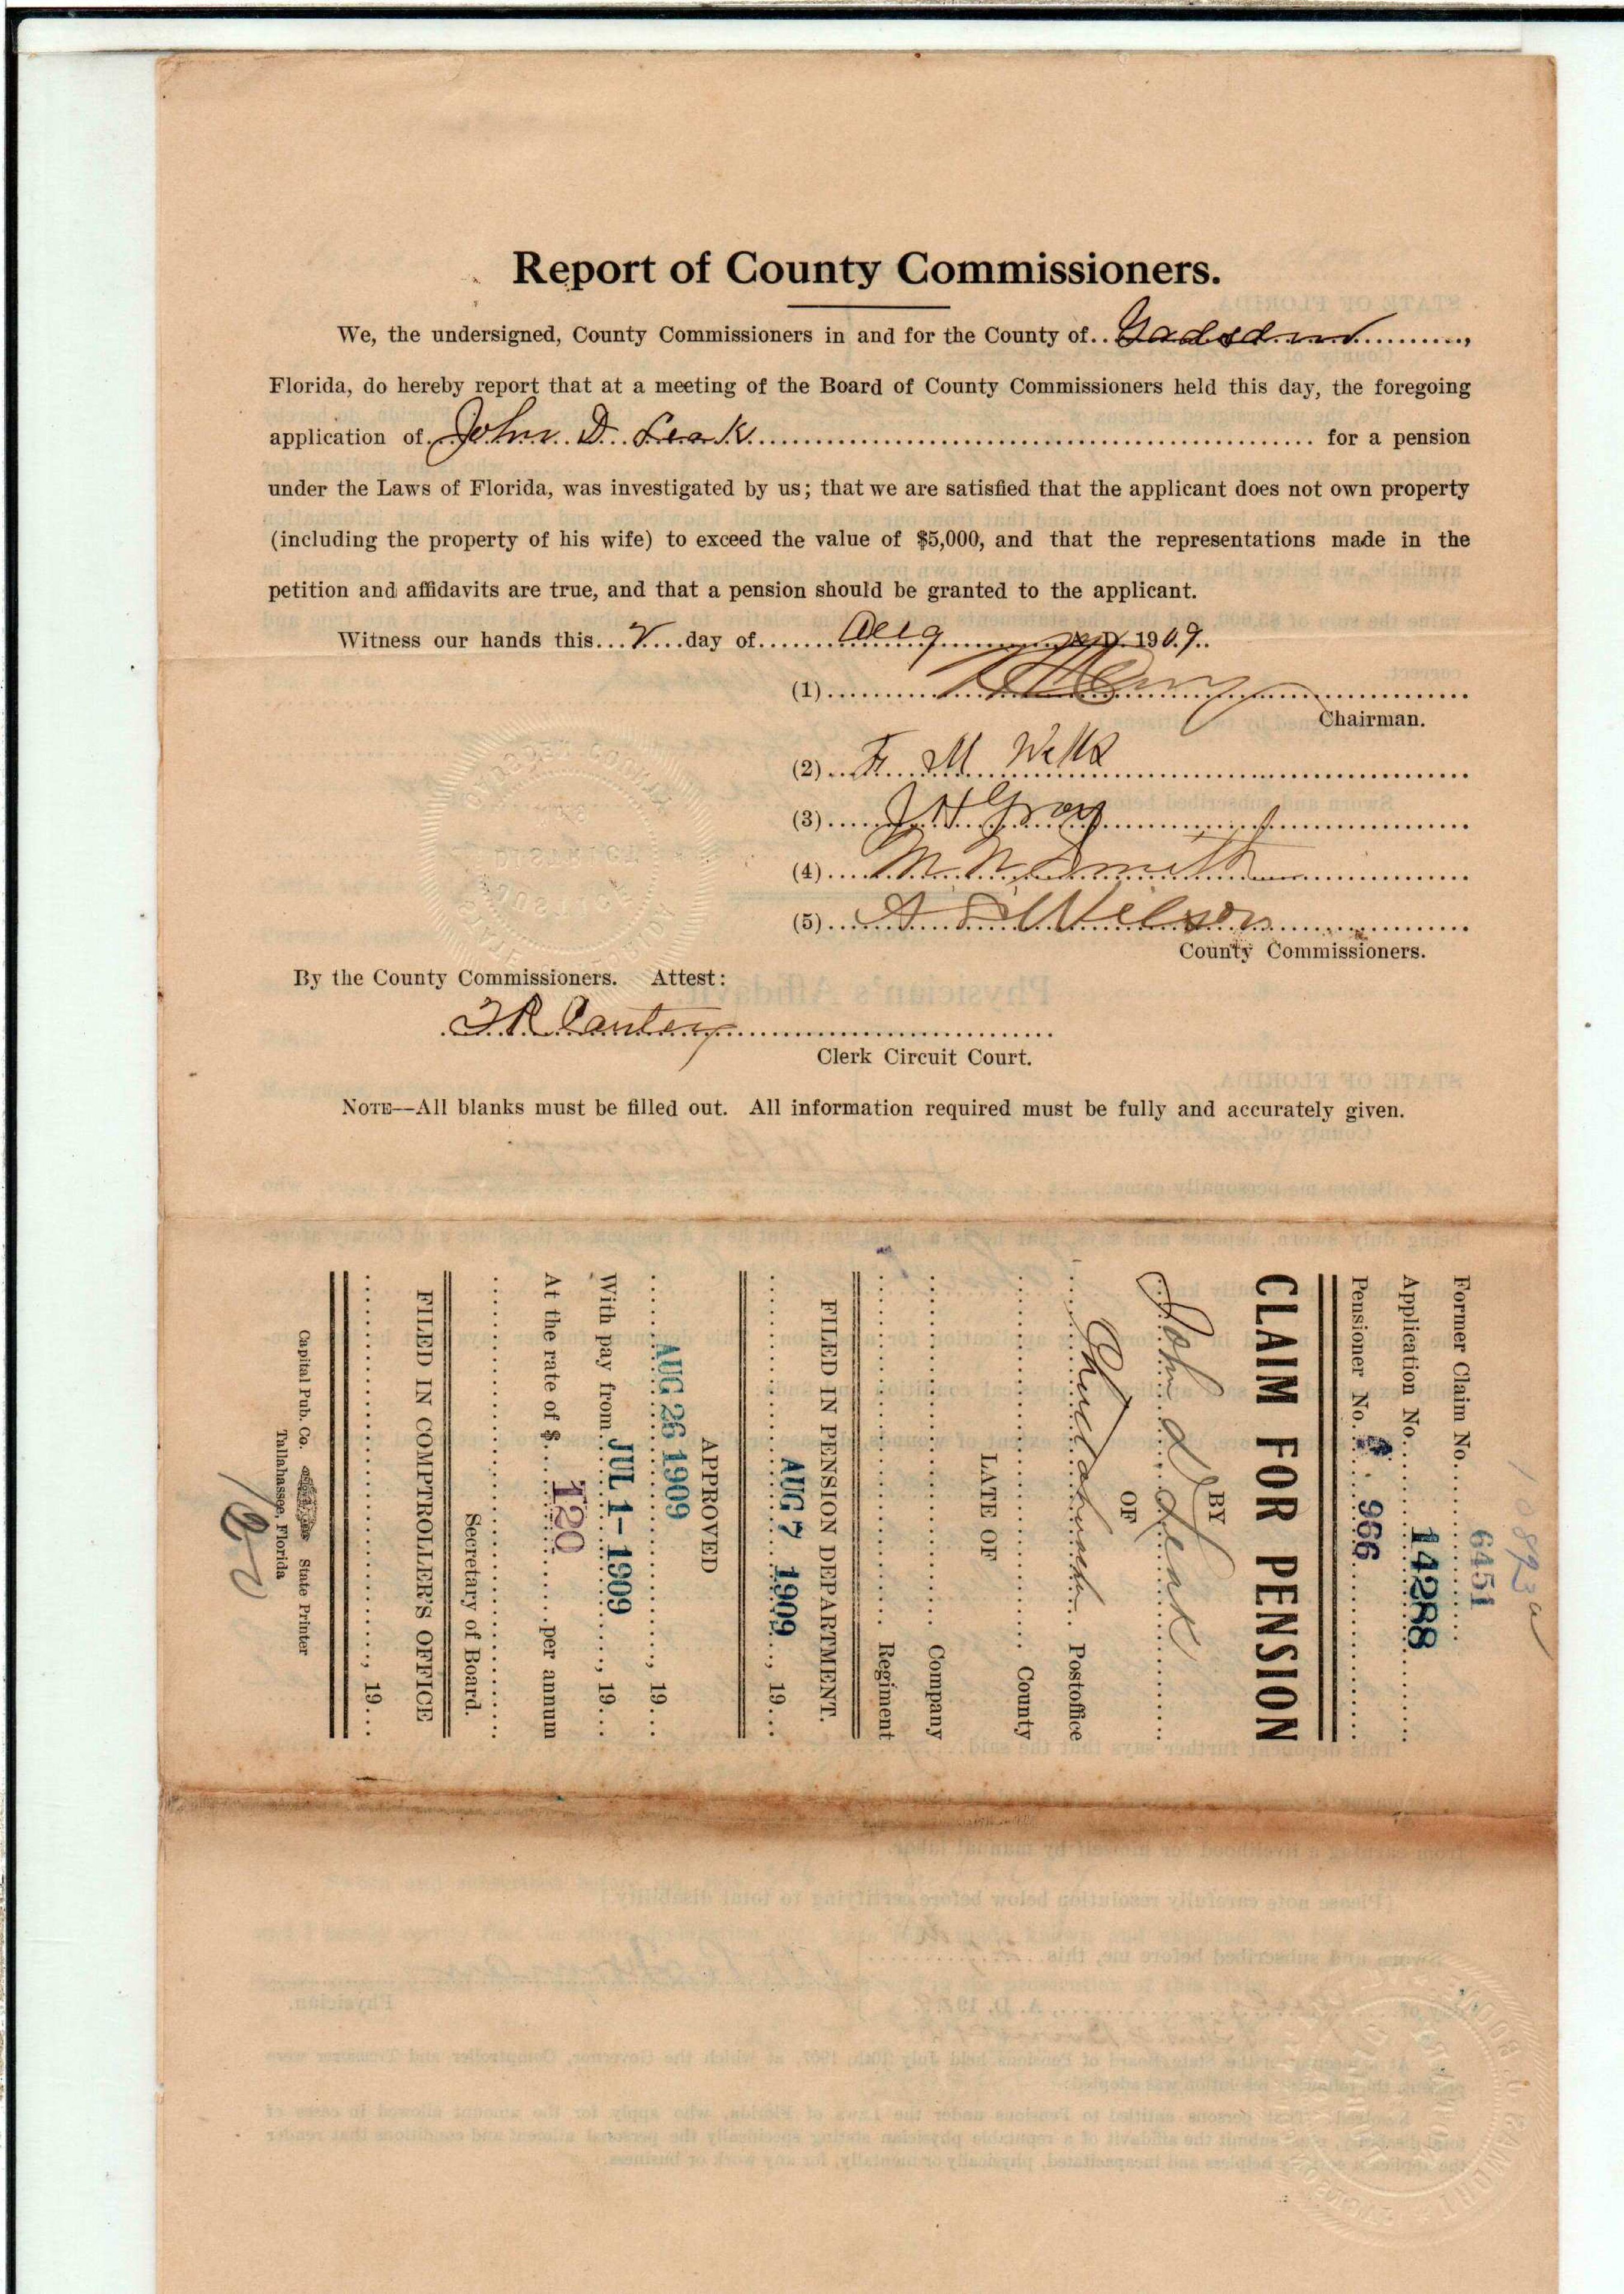 Report of County Commissioners.
We, the undersigned, County Commissioners in and for the County of Gadsden,
Florida, do hereby report that at a meeting of the Board of County Commissioners held this day, the foregoing
application of John D. Leak for a pension
under the Laws of Florida, was investigated by us; that we are satisfied that the applicant does not own property
(including the property of his wife) to exceed the value of $5,000, and that the representations made in the
petition and affidavits are true, and that a pension should be granted to the applicant.
Witness our hands this day of Aug A. D. 1909.
(1)
Chairman.
(2) F. M. Wells
(3) J H Gray
(4) Smith
(5) Wilson
County Commissioners.
By the County Commissioners. Attest:
Clerk Circuit Court.
NOTE—All blanks must be filled out. All information required must be fully and accurately given.
Former Claim No. 6451
Application No. 14288
Pensioner No. 966
CLAIM FOR PENSION
BY
John D Leak
OF
Postoffice
County
LATE OF
Company
Regiment
FILED IN PENSION DEPARTMENT.
AUG 7 1909, 19
APPROVED
AUG 26 1909, 19
With pay from JUL 1 - 1909, 19
At the rate of $ 120 per annum
Secretary of Board.
FILED IN COMPTROLLER'S OFFICE
, 19
Capital Pub. Co. State Printer
Tallahassee, Florida